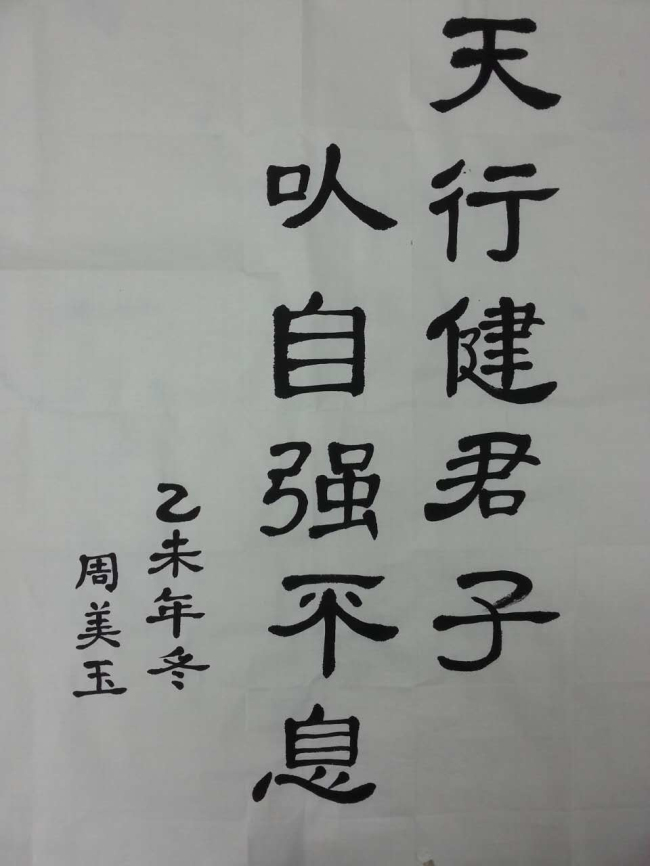 天行健君子
以自强不息
乙未年冬
周美玉